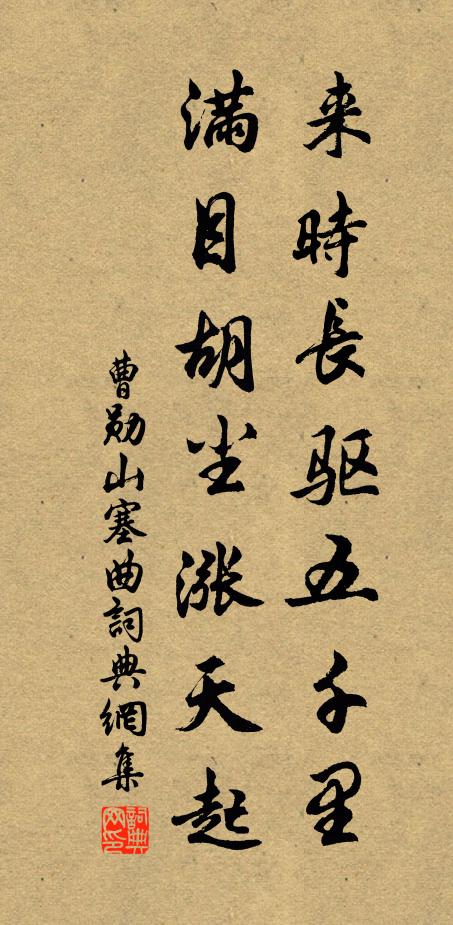 来時長驱五千里
满目胡尘涨天起
曹勋山塞曲詞典網集
詞典网印